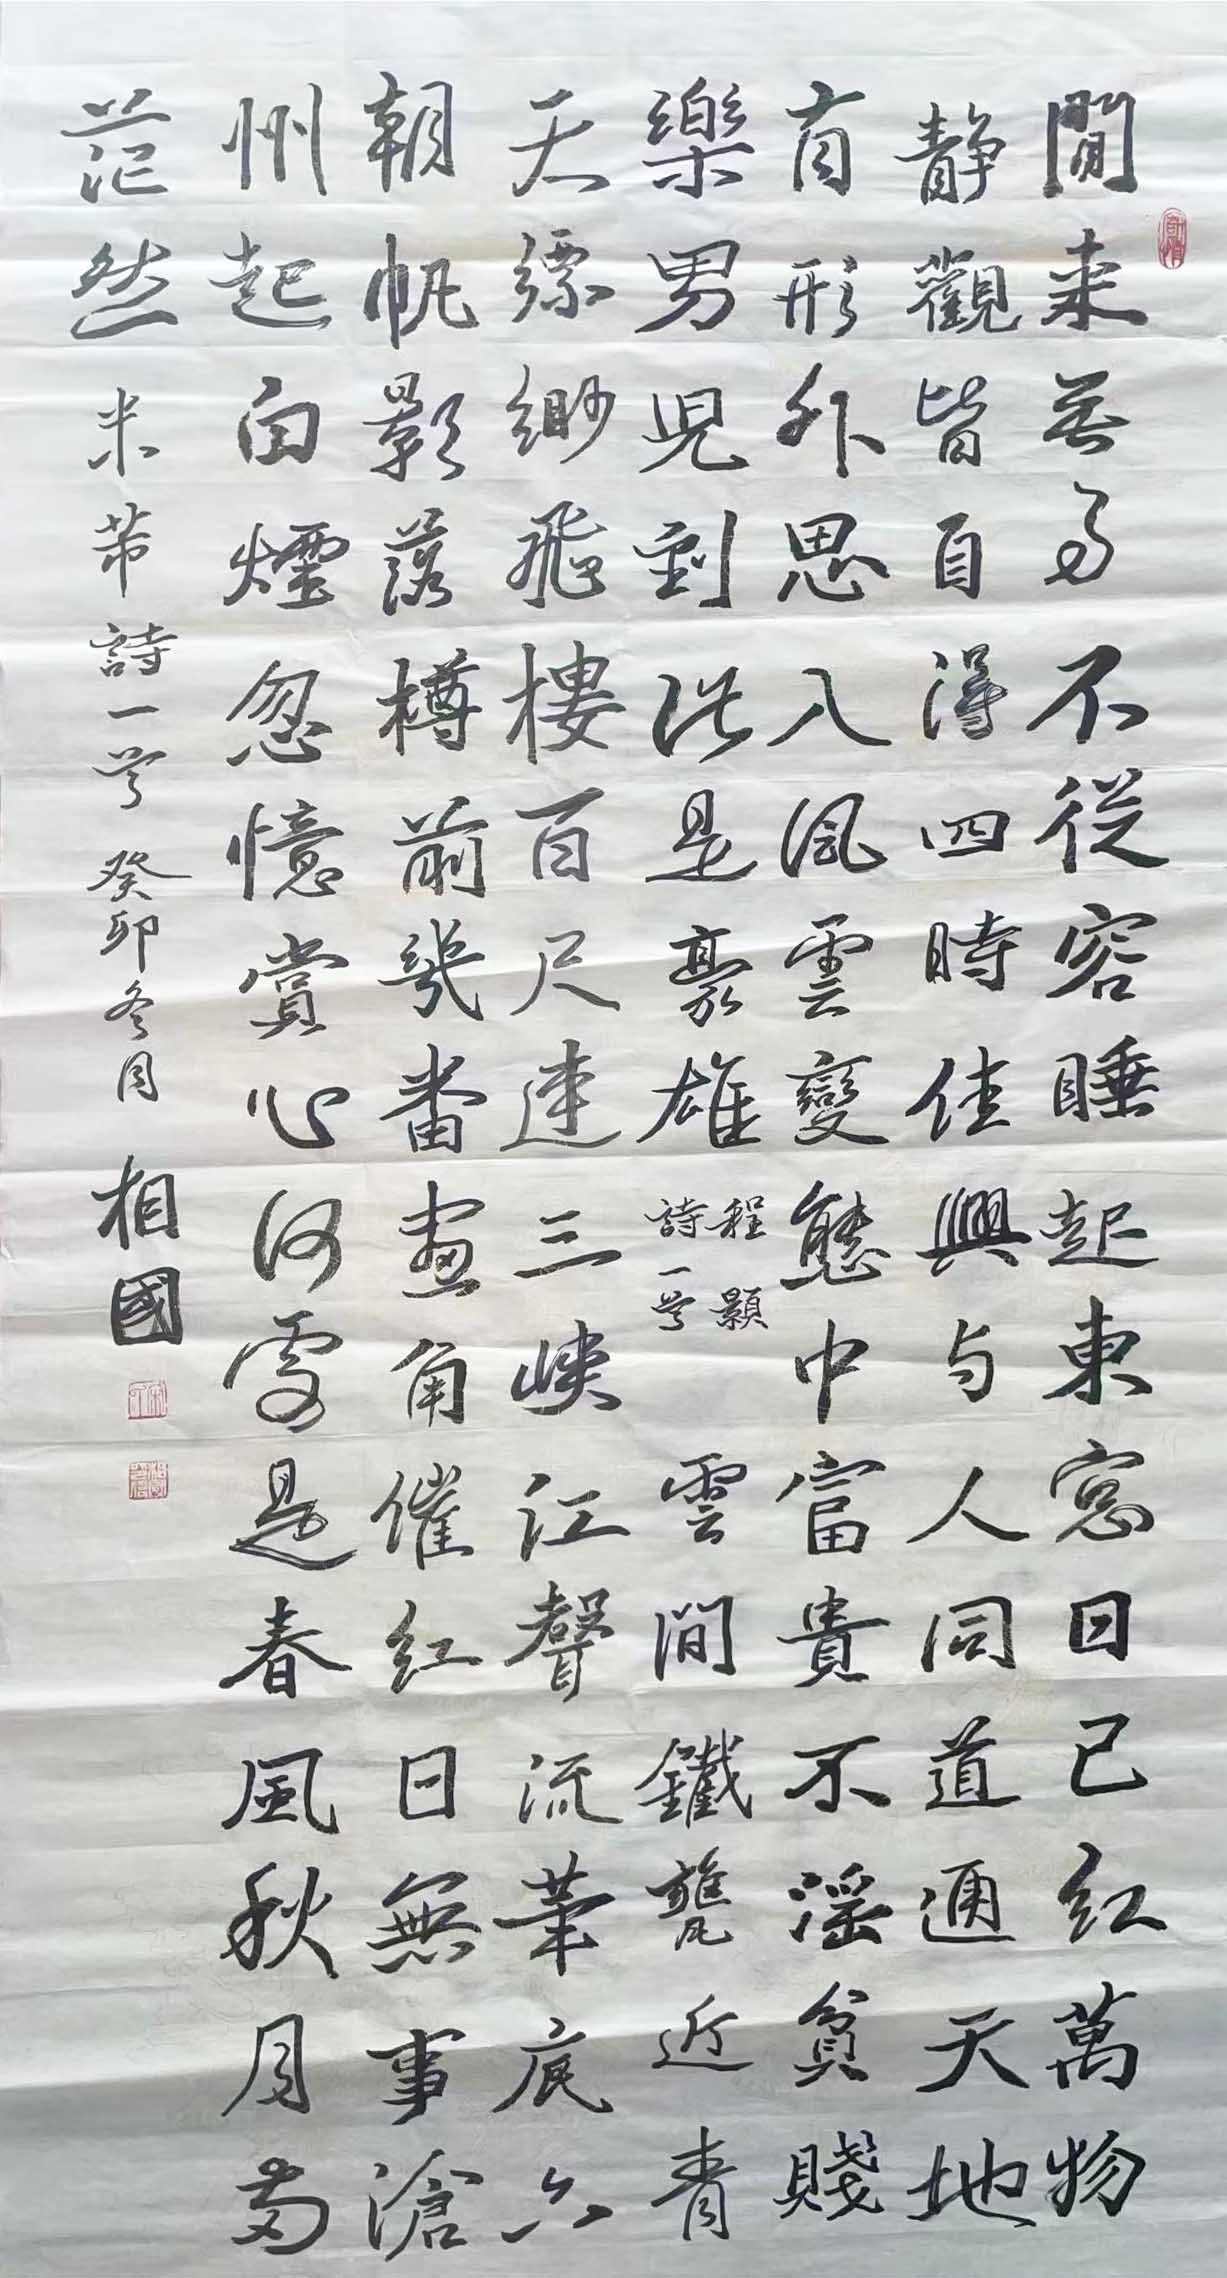 閒来無事不從容睡起東窓日已紅萬物
静觀皆自得四時佳興与人同道通天地
有形外思入風雲變態中富貴不淫貧賤
樂男兒到此是豪雄
程顥
詩一首
雲間鐵甕近青
天縹緲飛樓百尺連三峽江聲流筆底六
朝帆影落樽前幾番畫角催紅日無事滄
州起白煙忽憶賞心何處是春風秋月兩
茫然 米芾詩一首 癸卯冬月 相國